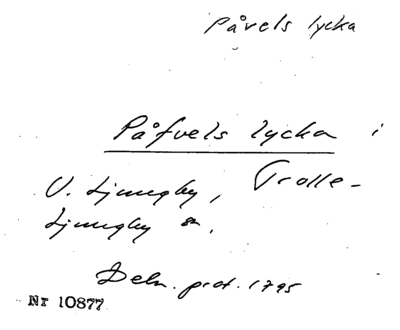 Påvels lycka
Påfvels lycka i
V. Ljungby, Trolle-
Ljungby sn.
Deln. prot. 1795
Nr 10877